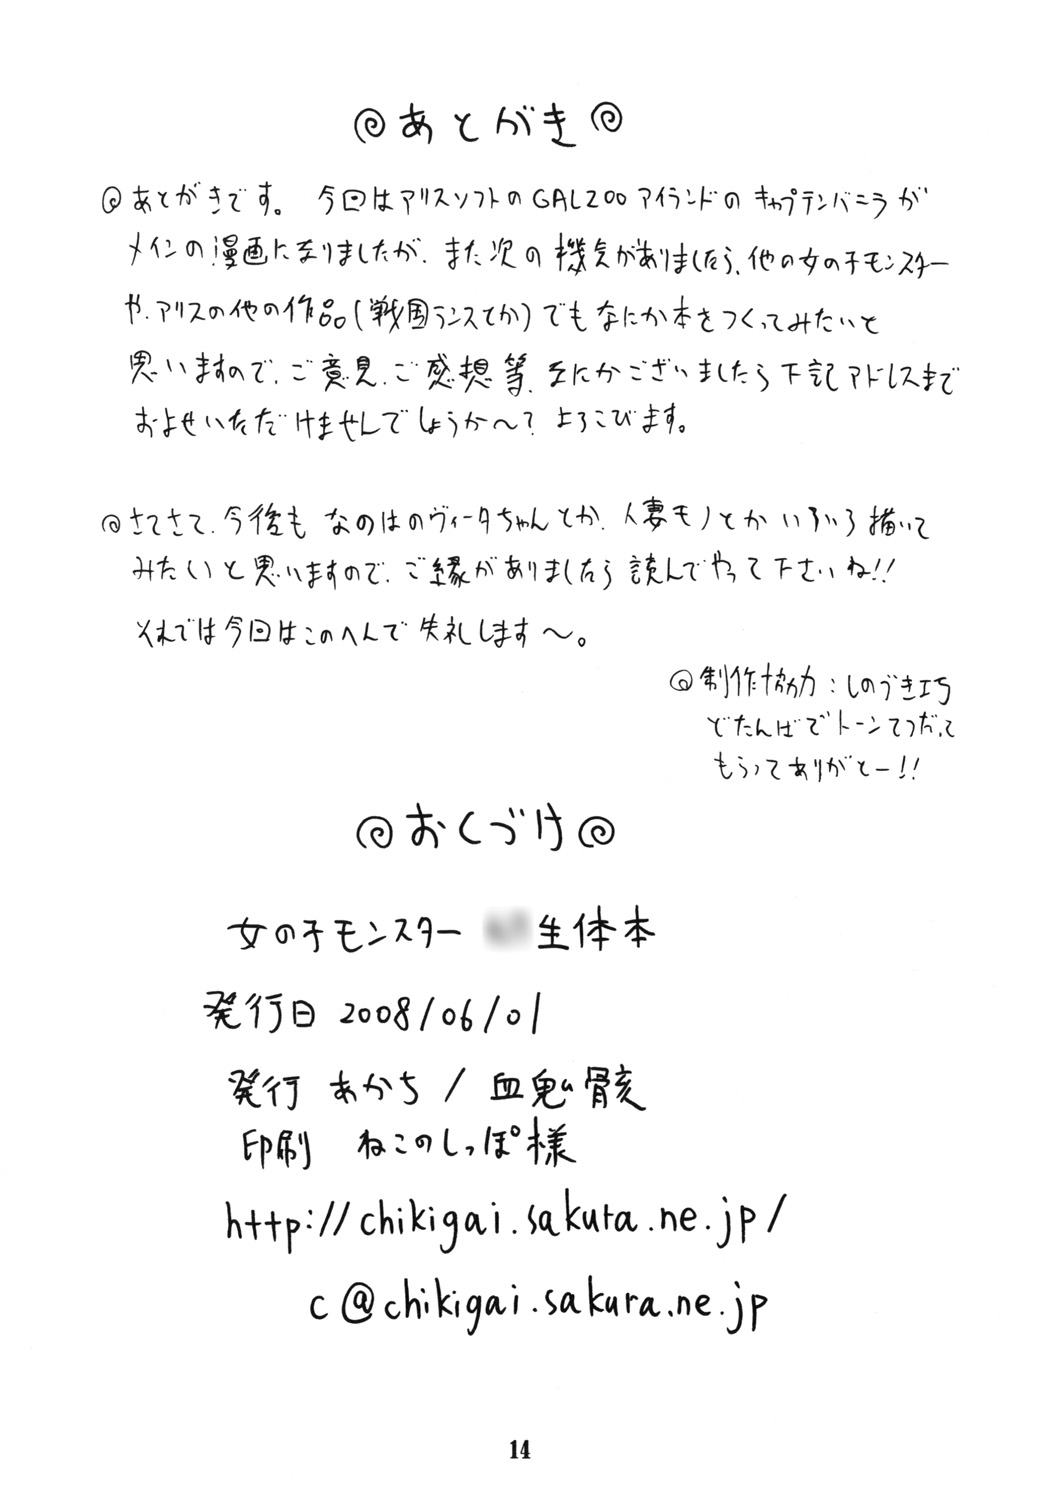 あとがき
あとがきです。 今回はアリスソフトのGALZOOアイランドのキャプテンバニラが
メインの漫画になりましたが、また次の機会がありましたら、他の女の子モンスター
や、アリスの他の作品(戦国ランスとか)でもなにか本をつくってみたいと
思いますので、ご意見、ご感想等、なにかございましたら下記アドレスまで
およせいただけませんでしょうか〜? よろこびます。
さてさて、今後も なのはのヴィータちゃんとか、人妻モノとか いろいろ描いて
みたいと思いますので、ご縁がありましたら読んでやって下さいね!!
それでは今回はこのへんで失礼します〜。
制作協力:しのづき巧
どたんばでトーンてつだって
もらってありがとー!!
おくづけ
女の子モンスター 生体本
発行日 2008/06/01
発行 あかち / 血鬼骨亥
印刷 ねこのしっぽ様
http://chikigai.sakura.ne.jp/
c@chikigai.sakura.ne.jp
14